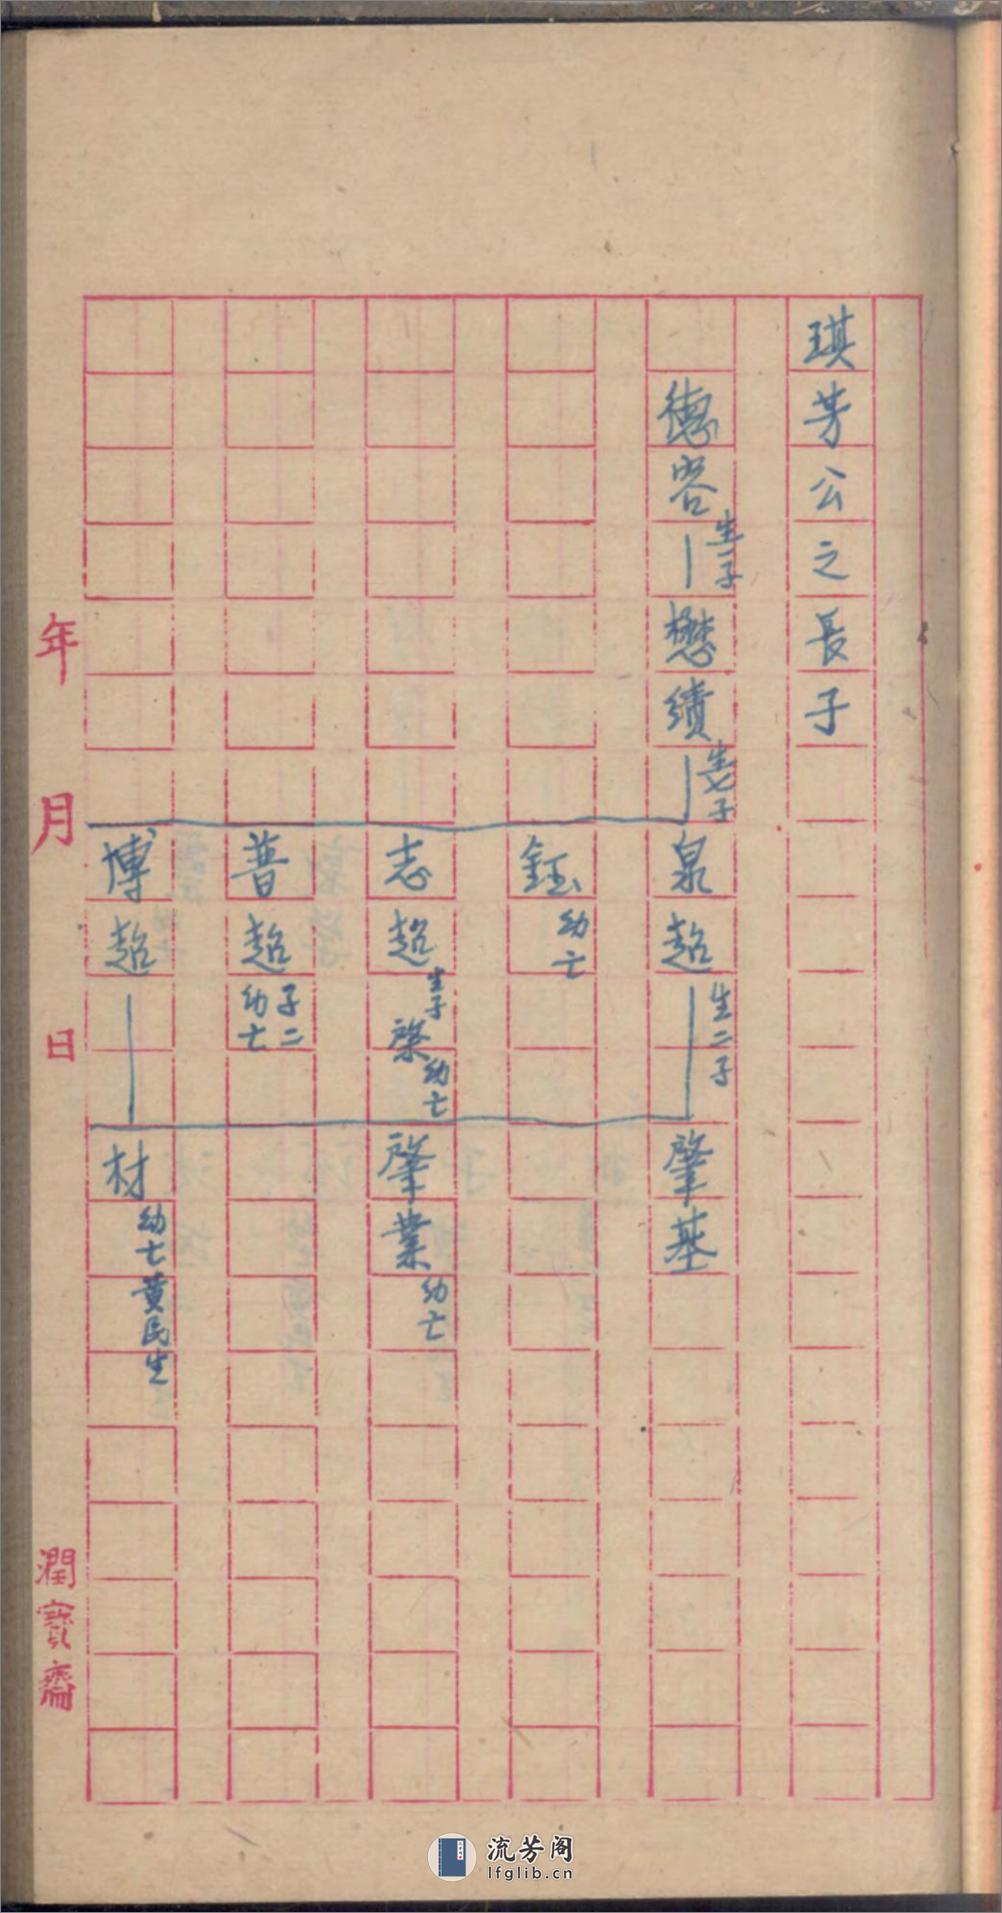 琪芳公之長子
德容 生一子 懋績 生七子 泉超 生二子 肇基
鈺 幼亡
志超 生子 棨 幼亡 肇業 幼亡
普超 子二幼亡
博超 材 幼亡 黄民生
年月日
潤寳齋
流芳阁
lfglib.cn